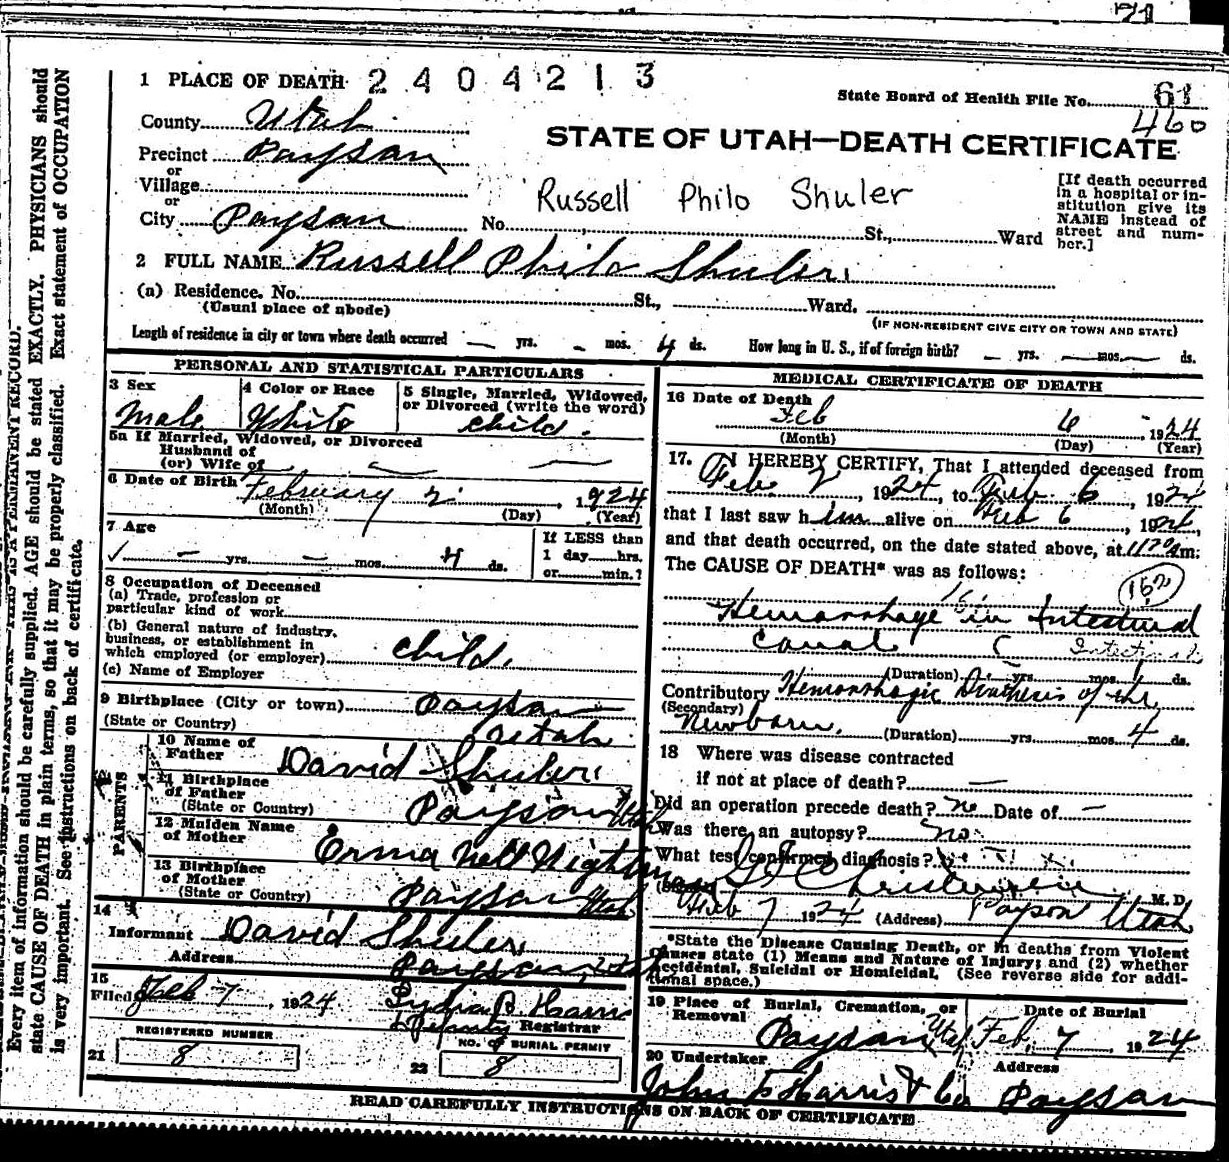 21
1 PLACE OF DEATH 2 4 0 4 2 1 3
State Board of Health File No. 61
460
County Utah
STATE OF UTAH—DEATH CERTIFICATE
Precinct Payson
or
Village
or
City Payson No. St., Ward
Russell Philo Shuler
[If death occurred
in a hospital or in-
stitution give its
NAME instead of
street and num-
ber.]
2 FULL NAME Russell Philo Shuler
(a) Residence. No. St., Ward.
(Usual place of abode)
(IF NON-RESIDENT GIVE CITY OR TOWN AND STATE)
Length of residence in city or town where death occurred — yrs. – mos. 4 ds. How long in U. S., if of foreign birth? – yrs. — mos. — ds.
PERSONAL AND STATISTICAL PARTICULARS
3 Sex
Male
4 Color or Race
White
5 Single, Married, Widowed,
or Divorced (write the word)
child.
5a If Married, Widowed, or Divorced
Husband of
(or) Wife of
6 Date of Birth February 2 , 1924
(Month) (Day) (Year)
7 Age
— yrs. — mos. 4 ds.
If LESS than
1 day hrs.
or min.?
8 Occupation of Deceased
(a) Trade, profession or
particular kind of work
(b) General nature of industry,
business, or establishment in
which employed (or employer) child.
(c) Name of Employer
9 Birthplace (City or town) Payson
(State or Country) Utah
PARENTS
10 Name of
Father David Shuler
11 Birthplace
of Father
(State or Country) Payson Utah
12 Maiden Name
of Mother Erma Nell Wightman
13 Birthplace
of Mother
(State or Country) Payson Utah
14
Informant David Shuler
Address Payson, Utah
15
Filed Feb 7, 1924 Lydia B Harris
Deputy Registrar
REGISTERED NUMBER
21 8
NO. OF BURIAL PERMIT
22 8
MEDICAL CERTIFICATE OF DEATH
16 Date of Death
Feb 6, 1924
(Month) (Day) (Year)
17. I HEREBY CERTIFY, That I attended deceased from
Feb 2, 1924, to Feb 6, 1924
that I last saw him alive on Feb 6, 1924,
and that death occurred, on the date stated above, at m;
The CAUSE OF DEATH* was as follows:
Hemorrhage in Intestinal
Canal
(Duration) yrs. mos. ds.
Contributory Hemorrhagic Diathesis of the
(Secondary)
Newborn. (Duration) yrs. mos. 4 ds.
18 Where was disease contracted
if not at place of death? —
Did an operation precede death? No Date of –
Was there an autopsy? No.
What test confirmed diagnosis?
(Signed) M. D.
Feb 7 1924 (Address) Payson Utah
*State the Disease Causing Death, or in deaths from Violent
Causes state (1) Means and Nature of Injury; and (2) whether
Accidental, Suicidal or Homicidal. (See reverse side for addi-
tional space.)
19 Place of Burial, Cremation, or
Removal
Payson Utah
Date of Burial
Feb. 7, 1924
20 Undertaker
John F Harris & Co
Address
Payson
READ CAREFULLY INSTRUCTIONS ON BACK OF CERTIFICATE
Every item of information should be carefully supplied. AGE should be stated EXACTLY. PHYSICIANS should
state CAUSE OF DEATH in plain terms, so that it may be properly classified. Exact statement of OCCUPATION
is very important. See instructions on back of certificate.